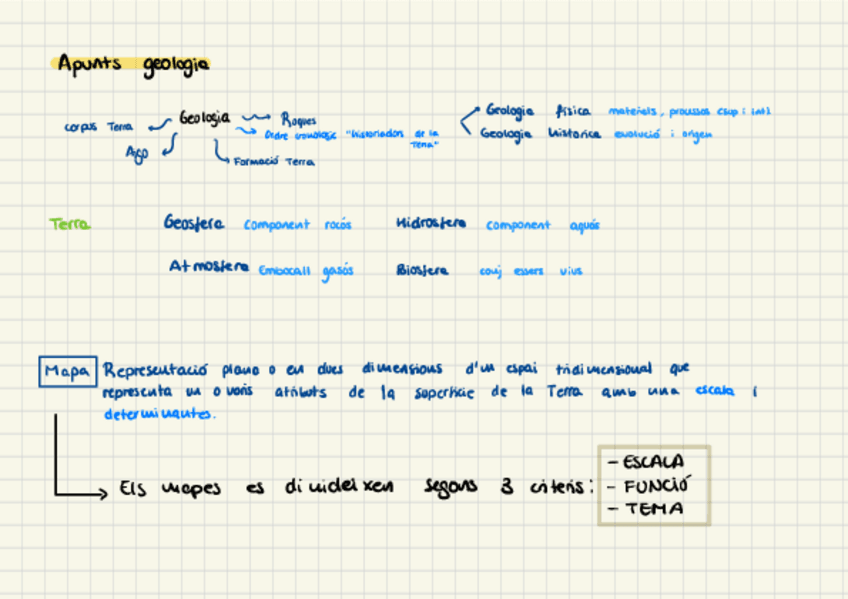 Apunts geologia
corpus Terra Geologia Roques
Ordre cronològic "historiadors de la Terra"
Formació Terra
Geologia física materials, processos (sup i int)
Geologia historica evolució i origen
Terra Geosfera component rocós Hidrosfera component aquós
Atmosfera Embocall gasós Biosfera conj essers vius
Mapa Representació plana o en dues dimensions d'un espai tridimensional que
representa un o varis atributs de la superficie de la Terra amb una escala i
determinantes.
Els mapes es divideixen segons 3 criteris:
- ESCALA
- FUNCIÓ
- TEMA